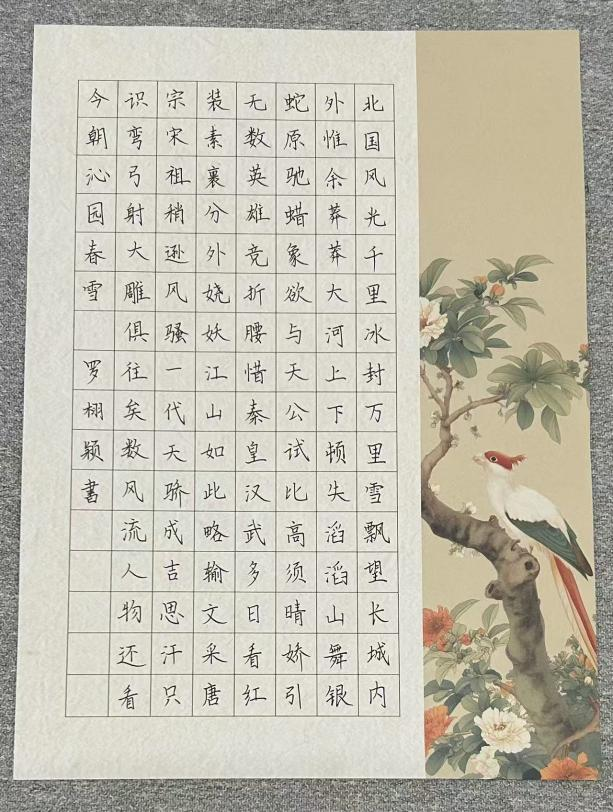 北国风光千里冰封万里雪飘望长城内
外惟余莽莽大河上下顿失滔滔山舞银
蛇原驰蜡象欲与天公试比高须晴娇引
无数英雄竞折腰惜秦皇汉武多日看红
装素裹分外娆妖江山如此略输文采唐
宗宋祖稍逊风骚一代天骄成吉思汗只
识弯弓射大雕俱往矣数风流人物还看
今朝沁园春雪 罗栩颖書